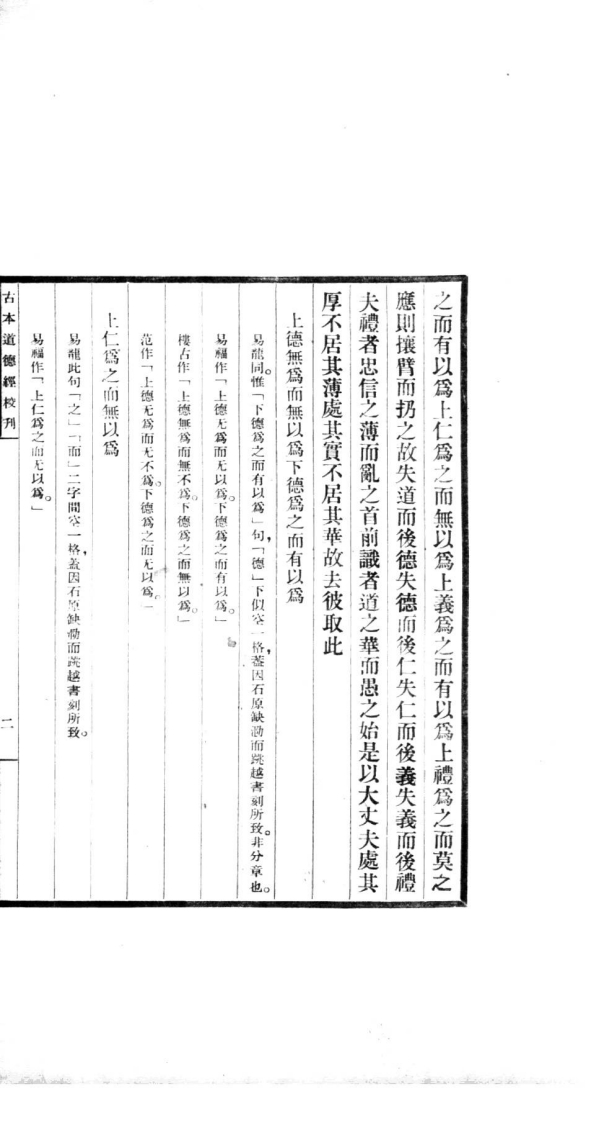 之而有以爲上仁爲之而無以爲上義爲之而有以爲上禮爲之而莫之
應則攘臂而扔之故失道而後德失德而後仁失仁而後義失義而後禮
夫禮者忠信之薄而亂之首前識者道之華而愚之始是以大丈夫處其
厚不居其薄處其實不居其華故去彼取此
上德無爲而無以爲下德爲之而有以爲
易龍同惟「下德爲之而有以爲」句「德」下似空一格，蓋因石原缺泐而跳越書刻所致。非分章也。
易福作「上德无爲而无以爲。下德爲之而有以爲。」
樓古作「上德無爲而無不爲。下德爲之而無以爲。」
范作「上德无爲而无不爲。下德爲之而无以爲。」
上仁爲之而無以爲
易龍此句「之」「而」二字間空一格，蓋因石原缺泐而跳越書刻所致。
易福作「上仁爲之而无以爲。」
古本道德經校刊
二